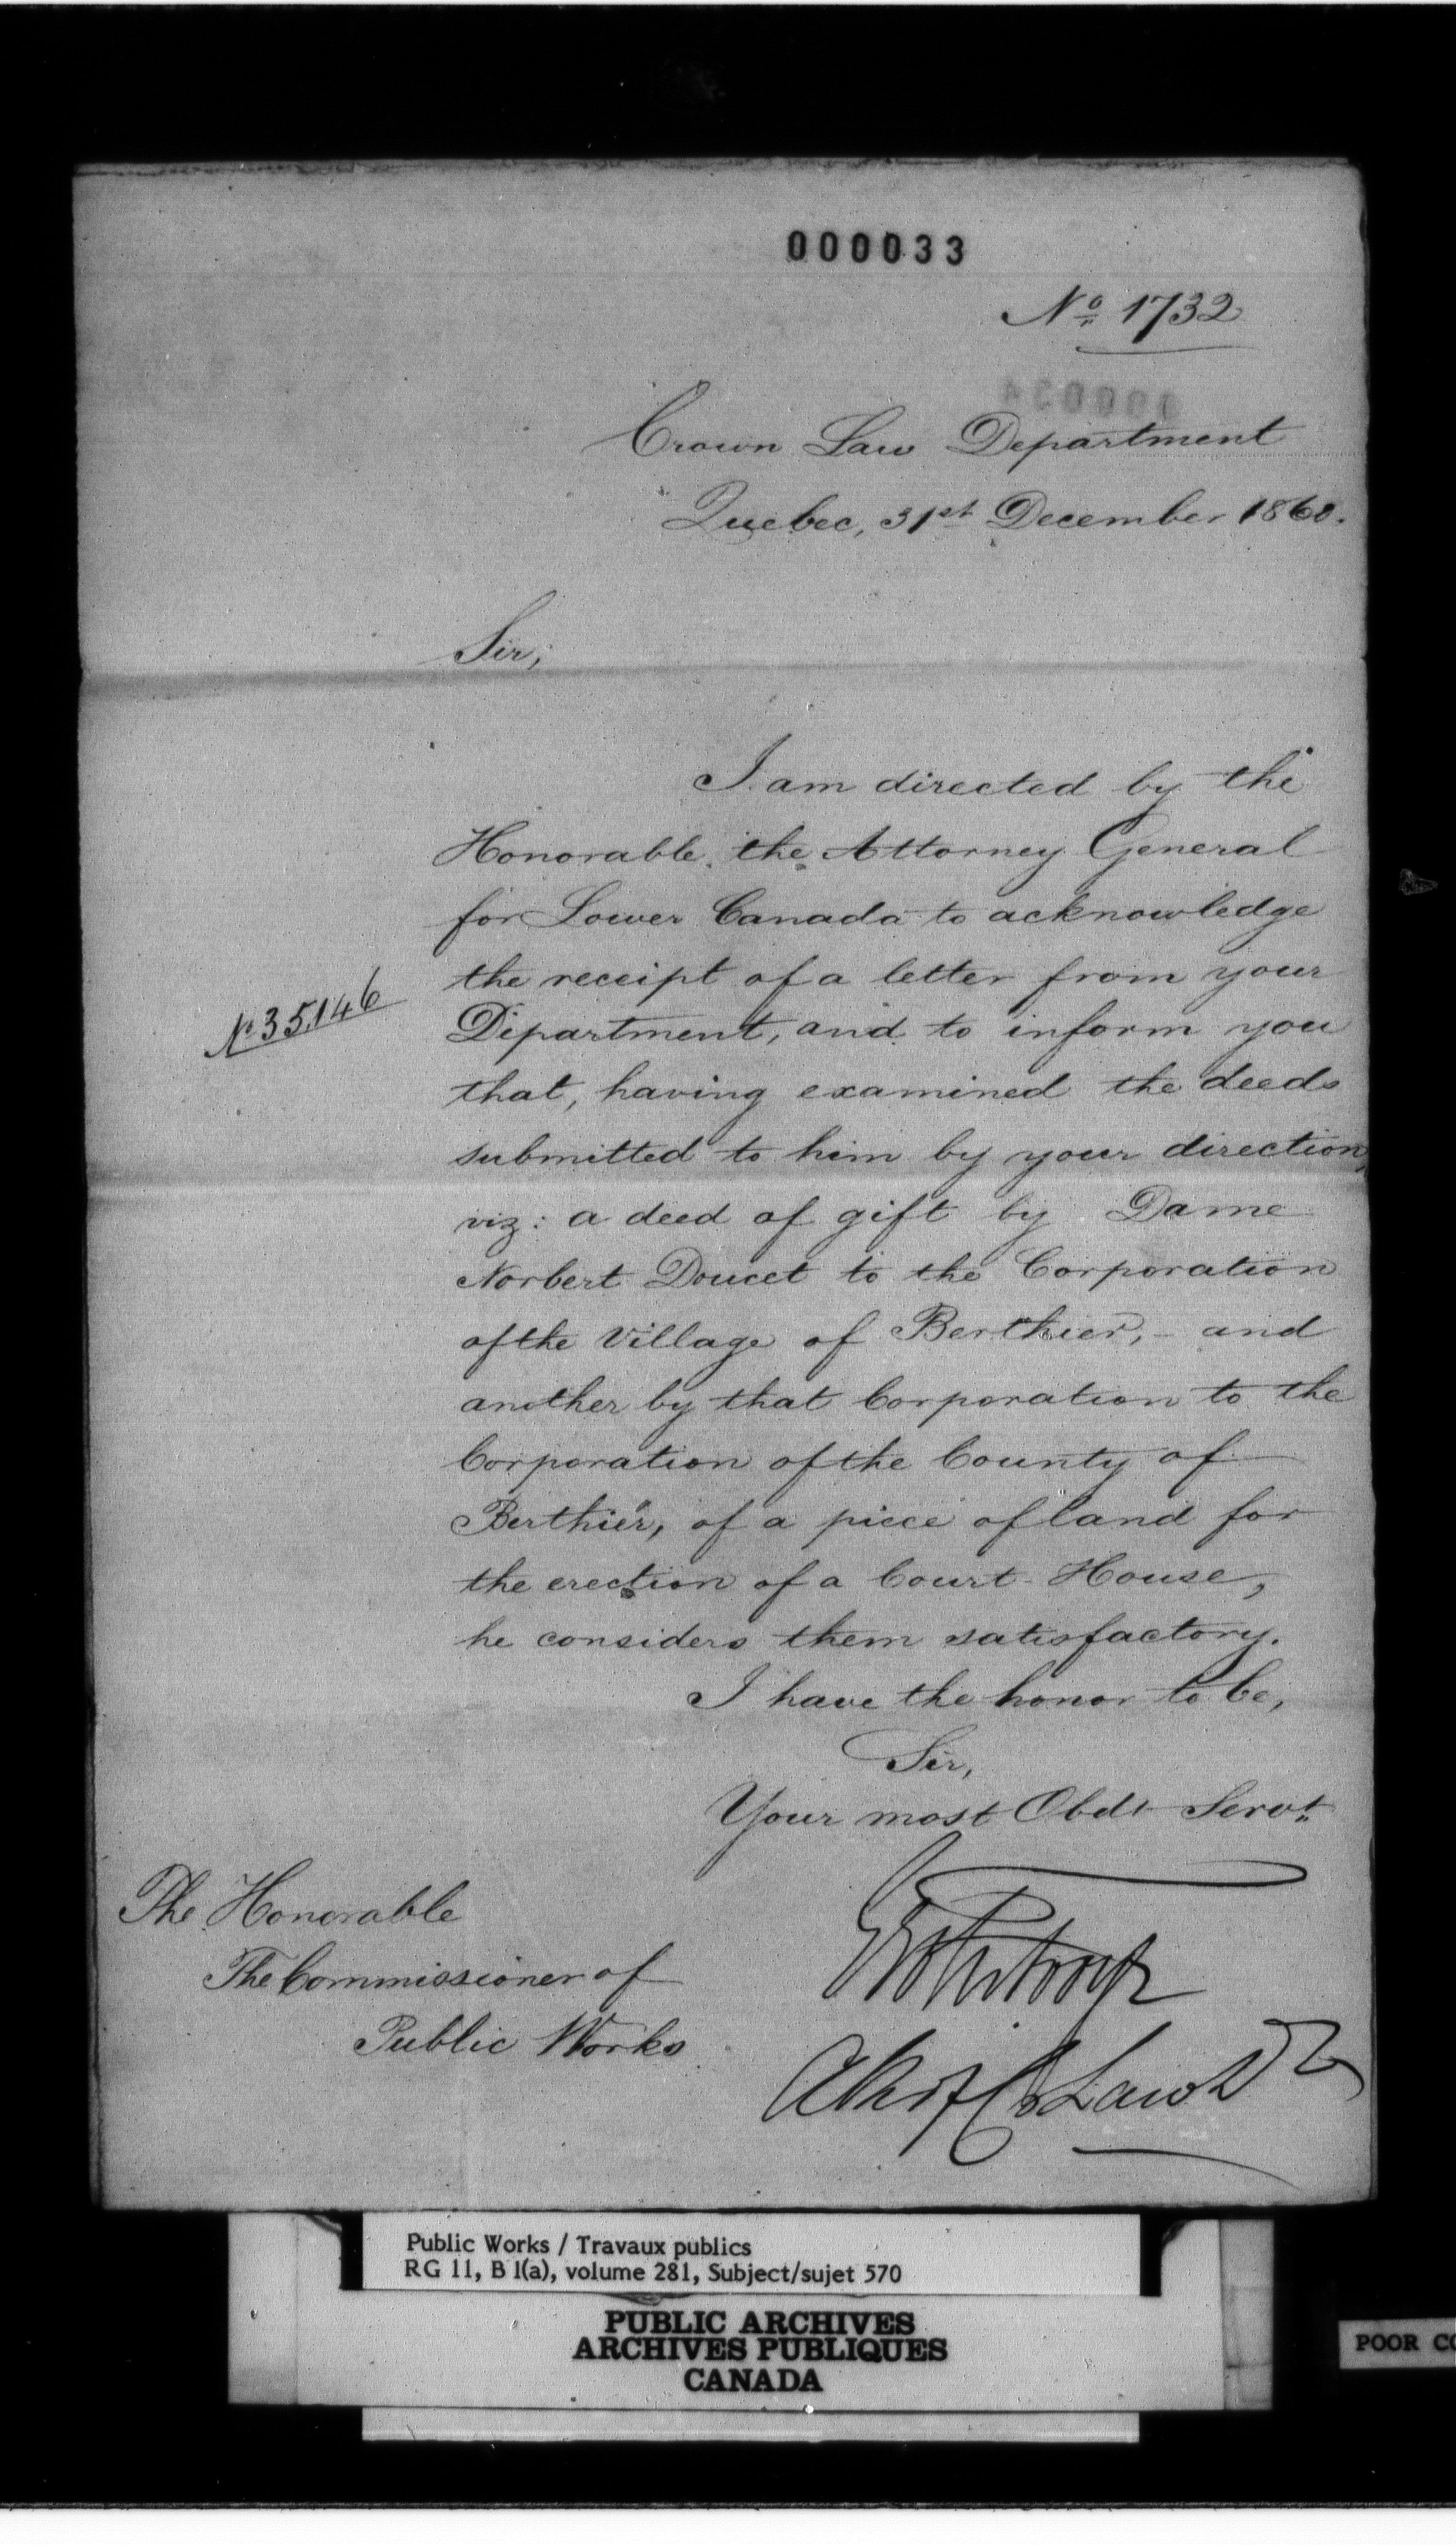 000033
No 1732
000034
Crown Law Department
Quebec, 31st December 1860.
Sir,
I am directed by the
Honorable the Attorney General
for Lower Canada to acknowledge
the receipt of a letter from your
No 35.146
Department, and to inform you
that, having examined the deeds
submitted to him by your direction,
viz: a deed of gift by Dame
Norbert Doucet to the Corporation
of the Village of Berthier, - and
another by that Corporation to the
Corporation of the County of
Berthier, of a piece of land for
the erection of a Court House,
he considers them satisfactory.
I have the honor to be,
Sir,
Your most Obdt Servt
The Honorable
The Commissioner of
Public Works
Law D
Public Works / Travaux publics
RG 11, B 1(a), volume 281, Subject/sujet 570
PUBLIC ARCHIVES
ARCHIVES PUBLIQUES
CANADA
POOR CO